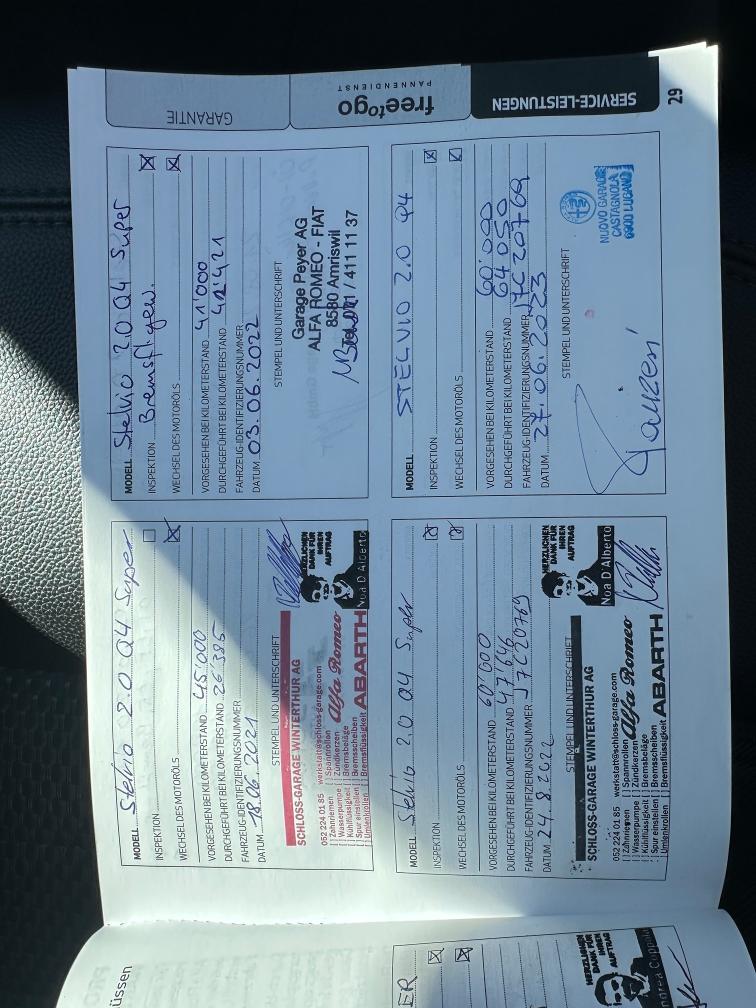 29
SERVICE-LEISTUNGEN
freetogo
PANNENDIENST
GARANTIE
MODELL Stelvio 2.0 Q4 Super
INSPEKTION
WECHSEL DES MOTORÖLS
VORGESEHEN BEI KILOMETERSTAND 45'000
DURCHGEFÜHRT BEI KILOMETERSTAND 26'385
FAHRZEUG-IDENTIFIZIERUNGSNUMMER
DATUM 18.06.2021
STEMPEL UND UNTERSCHRIFT
SCHLOSS-GARAGE WINTERTHUR AG
052 224 01 85 werkstatt@schloss-garage.com
[ ] Zahnriemen [ ] Spannrollen
[ ] Wasserpumpe [ ] Zündkerzen
[ ] Kühlflüssigkeit [ ] Bremsbeläge
[ ] Spur einstellen [ ] Bremsscheiben
[ ] Umlenkrollen [ ] Bremsflüssigkeit
Alfa Romeo
ABARTH
HERZLICHEN
DANK FÜR
IHREN
AUFTRAG
Noa D'Alberto
MODELL Stelvio 2.0 Q4 Super
INSPEKTION Bremsflüssigk.
WECHSEL DES MOTORÖLS
VORGESEHEN BEI KILOMETERSTAND 41'000
DURCHGEFÜHRT BEI KILOMETERSTAND 41'421
FAHRZEUG-IDENTIFIZIERUNGSNUMMER
DATUM 03.06.2022
STEMPEL UND UNTERSCHRIFT
Garage Peyer AG
ALFA ROMEO - FIAT
8580 Amriswil
Tel. 071 / 411 11 37
MODELL Stelvio 2.0 Q4 Super
INSPEKTION
WECHSEL DES MOTORÖLS
VORGESEHEN BEI KILOMETERSTAND 60'000
DURCHGEFÜHRT BEI KILOMETERSTAND 47'646
FAHRZEUG-IDENTIFIZIERUNGSNUMMER J7C20769
DATUM 24.8.2022
STEMPEL UND UNTERSCHRIFT
SCHLOSS-GARAGE WINTERTHUR AG
052 224 01 85 werkstatt@schloss-garage.com
[ ] Zahnriemen [ ] Spannrollen
[ ] Wasserpumpe [ ] Zündkerzen
[ ] Kühlflüssigkeit [ ] Bremsbeläge
[ ] Spur einstellen [ ] Bremsscheiben
[ ] Umlenkrollen [ ] Bremsflüssigkeit
Alfa Romeo
ABARTH
HERZLICHEN
DANK FÜR
IHREN
AUFTRAG
Noa D'Alberto
MODELL STELVIO 2.0 Q4
INSPEKTION
WECHSEL DES MOTORÖLS
VORGESEHEN BEI KILOMETERSTAND 60'000
DURCHGEFÜHRT BEI KILOMETERSTAND 64'050
FAHRZEUG-IDENTIFIZIERUNGSNUMMER J7C20769
DATUM 27.06.2023
STEMPEL UND UNTERSCHRIFT
NUOVO GARAGE
CASTAGNOLA
6900 LUGANO
üssen
ER
HERZLICHEN
DANK FÜR
IHREN
AUFTRAG